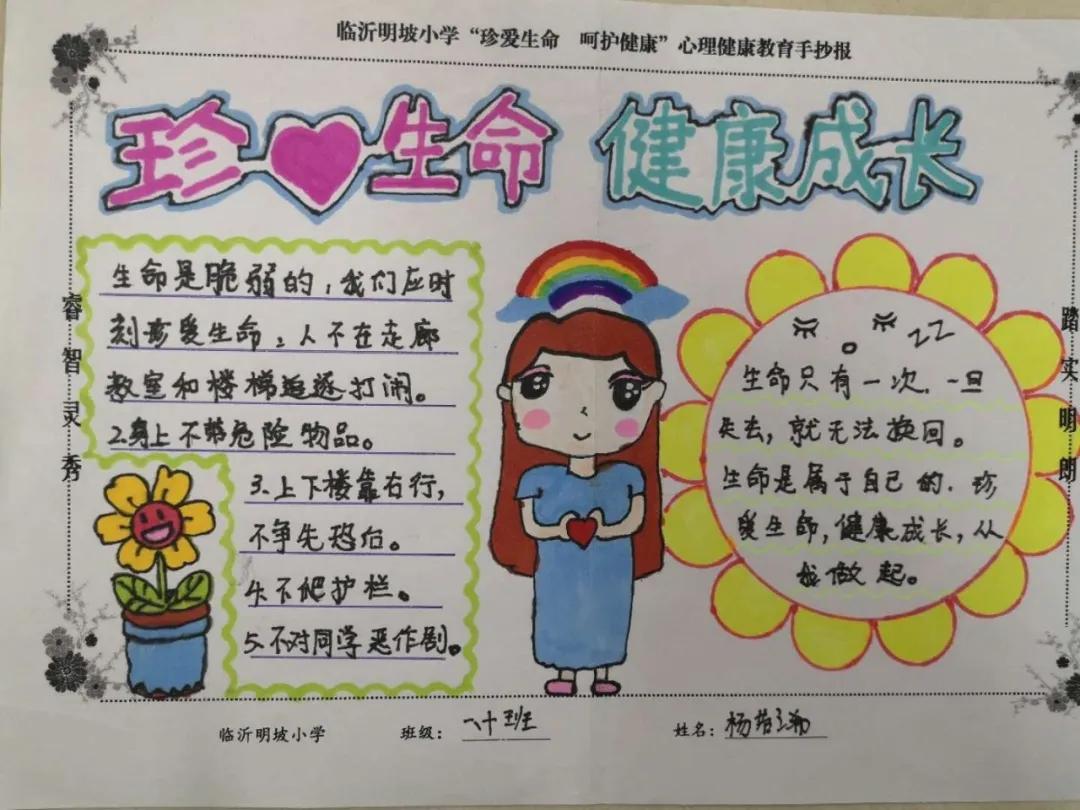 临沂明坡小学“珍爱生命 呵护健康”心理健康教育手抄报
珍生命 健康成长
生命是脆弱的，我们应时
刻珍爱生命，1不在走廊
教室和楼梯追逐打闹。
2.身上不带危险物品。
3.上下楼靠右行，
不争先恐后。
4.不爬护栏。
5.不对同学恶作剧。
zz
生命只有一次.一旦
失去，就无法换回。
生命是属于自己的.珍
爱生命，健康成长，从
我做起。
睿智灵秀
踏实明朗
临沂明坡小学 班级： 一、十班 姓名：杨